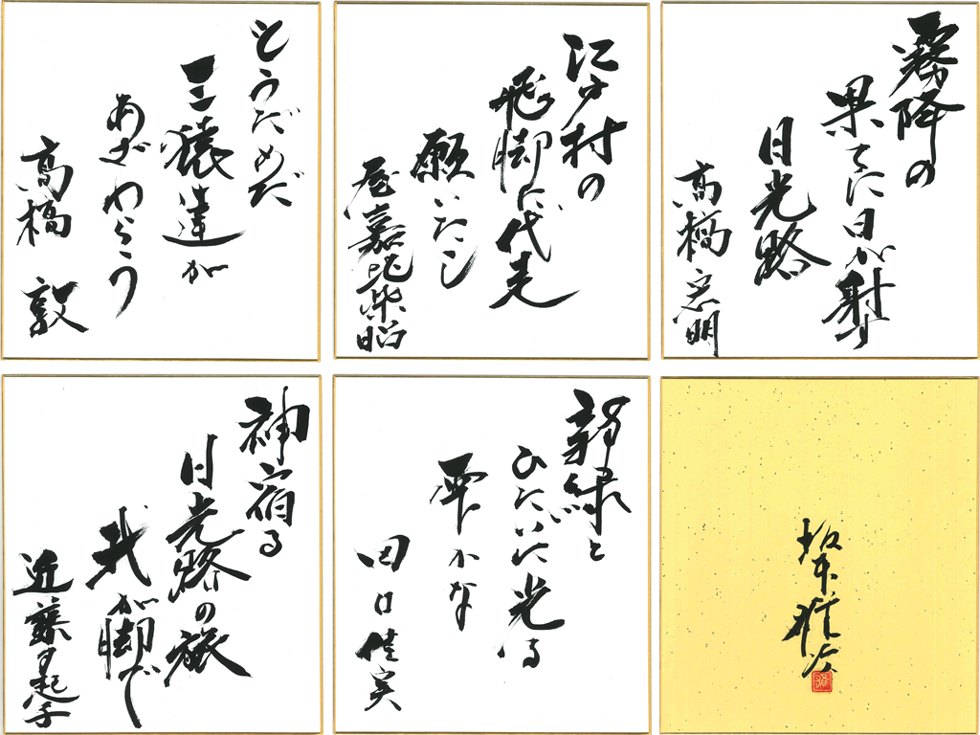 霧降の
果てに日が射す
日光路
高橋宏明
江戸村の
飛脚に代走
願いたし
屋嘉比柴昭
どうだめだ
三猿達が
あざわらう
高橋 敦
新緑と
ひたいに光る
雫かな
田口佳実
神宿る
日光路の旅
我が脚で
近藤早起子
坂本雅